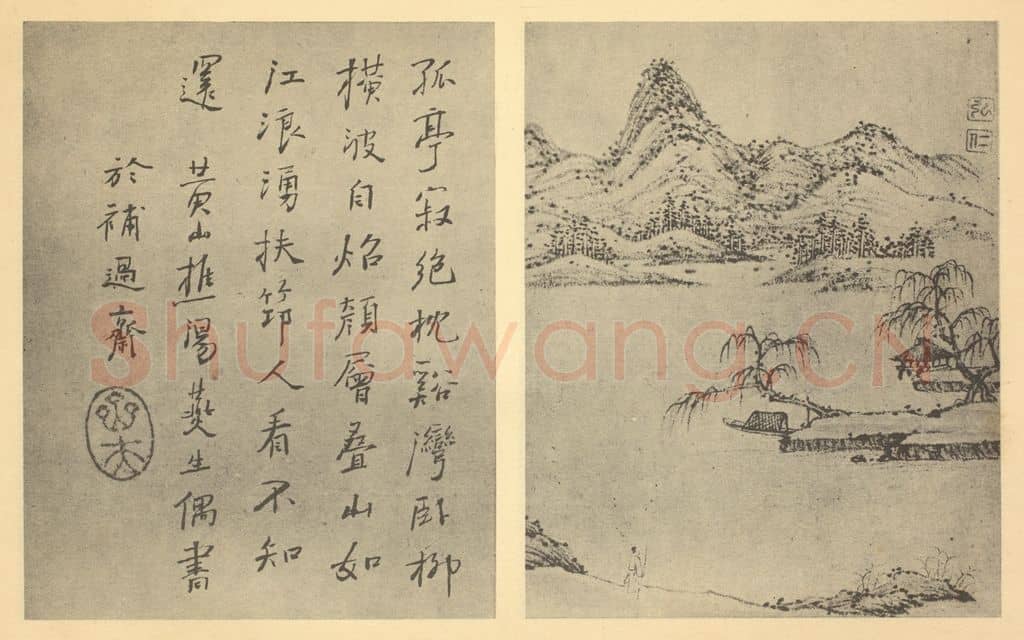 孤亭寂絶枕谿灣卧柳
橫波自炤顔層叠山如
江浪湧扶筇人看不知
還 黄山樵湯燕生偶書
於補過齋
弘
仁
Shufawang.CN